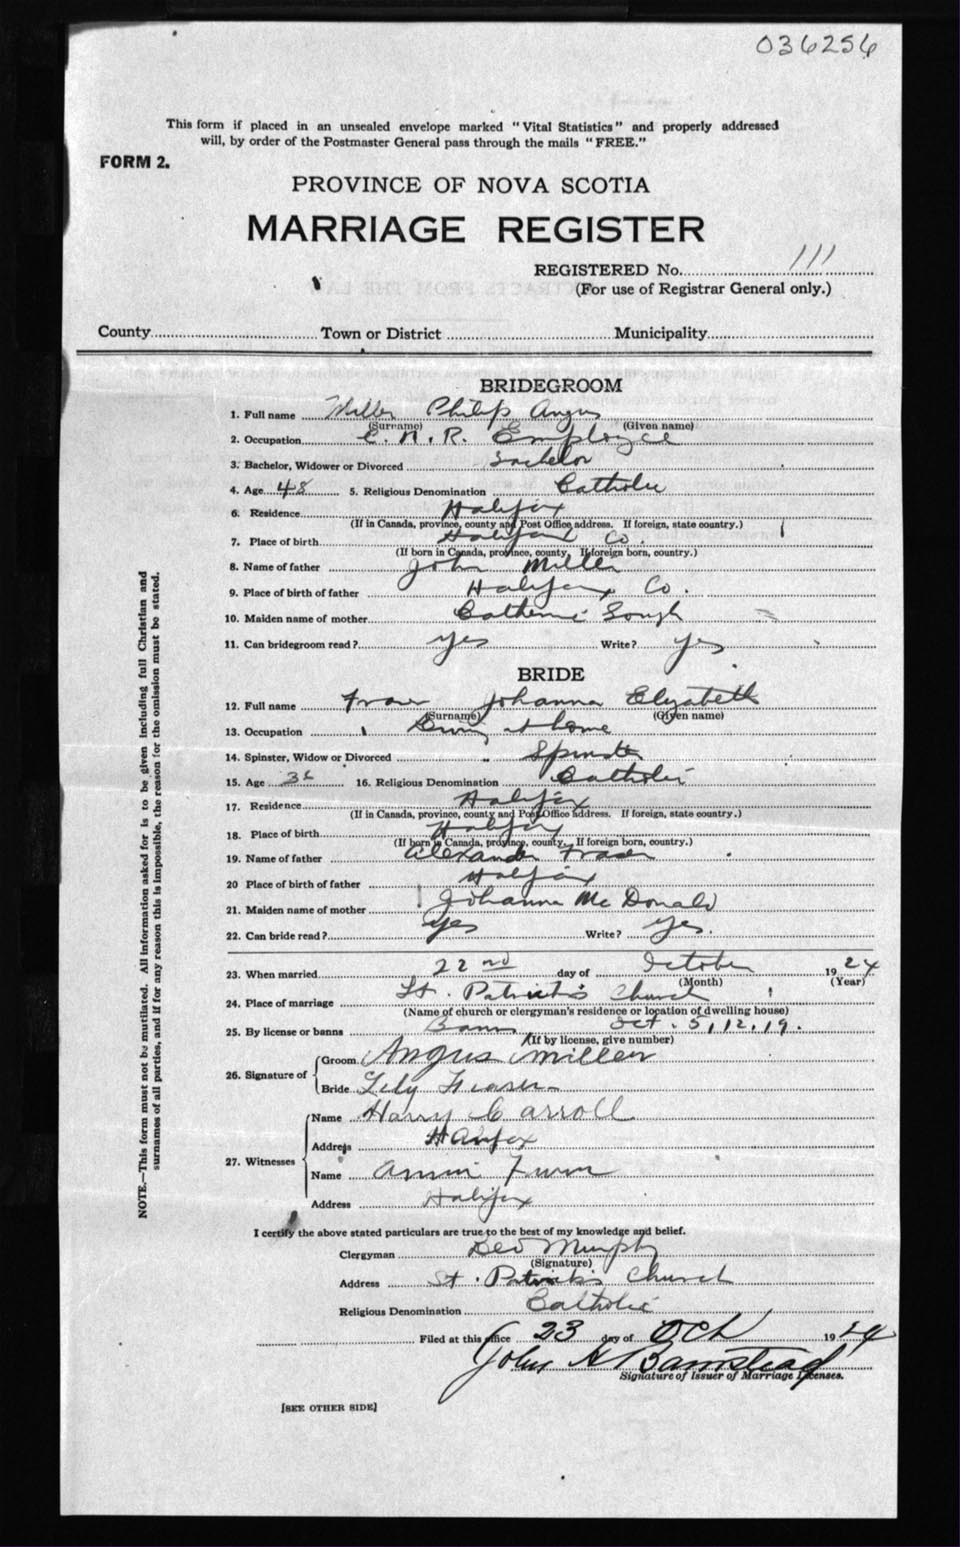 036256
This form if placed in an unsealed envelope marked "Vital Statistics" and properly addressed
will, by order of the Postmaster General pass through the mails "FREE."
FORM 2.
PROVINCE OF NOVA SCOTIA
MARRIAGE REGISTER
REGISTERED No. 111
(For use of Registrar General only.)
County Town or District Municipality
BRIDEGROOM
1. Full name Miller Philip Angus
(Surname) (Given name)
2. Occupation C. N. R. Employee
3. Bachelor, Widower or Divorced Bachelor
4. Age 48 5. Religious Denomination Catholic
6. Residence Halifax
(If in Canada, province, county and Post Office address. If foreign, state country.)
7. Place of birth Halifax Co.
(If born in Canada, province, county. If foreign born, country.)
8. Name of father John Miller
9. Place of birth of father Halifax Co.
10. Maiden name of mother Catherine
11. Can bridegroom read? Yes Write? Yes
BRIDE
12. Full name Fraser Johanna Elizabeth
(Surname) (Given name)
13. Occupation at home
14. Spinster, Widow or Divorced Spinster
15. Age 16. Religious Denomination Catholic
17. Residence Halifax
(If in Canada, province, county and Post Office address. If foreign, state country.)
18. Place of birth Halifax
(If born in Canada, province, county. If foreign born, country.)
19. Name of father Alexander Fraser
20 Place of birth of father Halifax
21. Maiden name of mother Johanna McDonald
22. Can bride read? Yes Write? Yes.
23. When married 22nd day of October 1924
(Month) (Year)
24. Place of marriage St. Patrick's Church
(Name of church or clergyman's residence or location of dwelling house)
25. By license or banns Banns Oct. 5, 12, 19.
(If by license, give number)
26. Signature of
Groom Angus Miller
Bride Lily Fraser
27. Witnesses
Name Harry Carroll
Address Halifax
Name Annie
Address Halifax
I certify the above stated particulars are true to the best of my knowledge and belief.
Clergyman Geo Murphy
(Signature)
Address St. Patrick's Church
Religious Denomination Catholic
Filed at this office 23 day of Oct 1924
John H Barnstead
Signature of Issuer of Marriage Licenses.
[SEE OTHER SIDE]
NOTE.—This form must not be mutilated. All information asked for is to be given including full Christian and
surnames of all parties, and if for any reason this is impossible, the reason for the omission must be stated.